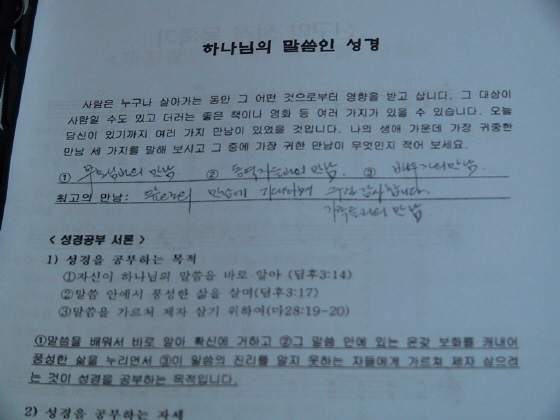 하나님의 말씀인 성경
사람은 누구나 살아가는 동안 그 어떤 것으로부터 영향을 받고 삽니다. 그 대상이
사람일 수도 있고 더러는 좋은 책이나 영화 등 여러 가지가 있을 수 있습니다. 오늘
당신이 있기까지 여러 가지 만남이 있었을 것입니다. 나의 생애 가운데 가장 귀중한
만남 세 가지를 말해 보시고 그 중에 가장 귀한 만남이 무엇인지 적어 보세요.
① 부모님과의 만남 ② 동역자들과의 만남. ③ 배우자의 만남.
최고의 만남: 만남에 감사합니다.
가족들과의 만남
< 성경공부 서론 >
1) 성경을 공부하는 목적
①자신이 하나님의 말씀을 바로 알아 (딤후3:14)
②말씀 안에서 풍성한 삶을 살며(딤후3:17)
③말씀을 가르쳐 제자 삼기 위하여(마28:19-20)
①말씀을 배워서 바로 알아 확신에 거하고 ②그 말씀 안에 있는 온갖 보화를 캐내어
풍성한 삶을 누리면서 ③이 말씀의 진리를 알지 못하는 자들에게 가르쳐 제자 삼으려
는 것이 성경을 공부하는 목적입니다.
2) 성경을 공부하는 자세